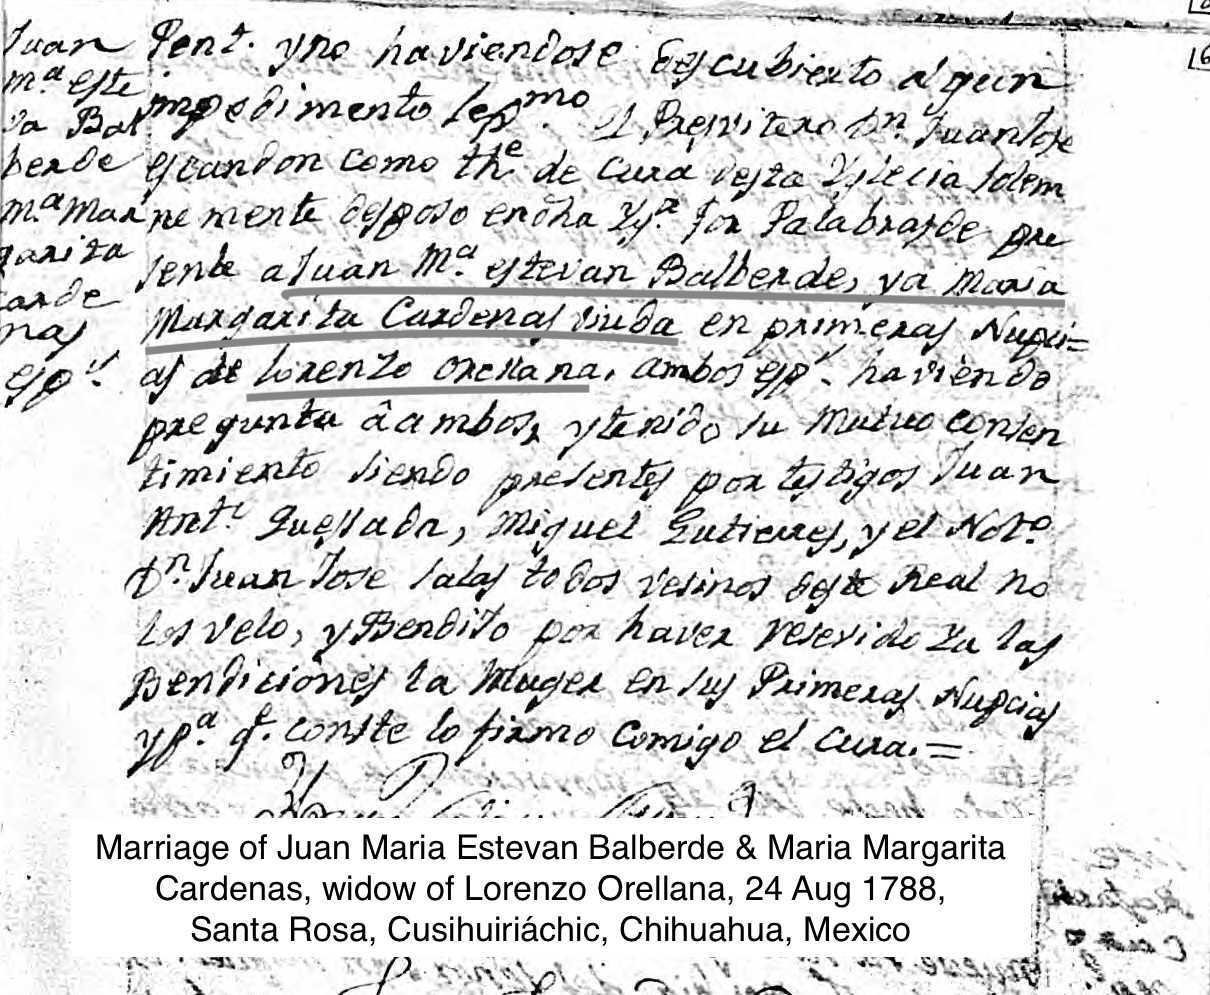 Juan
Mª este
va Bal
berde
Mª Mar
garita
Carde
nas
espˢ.
Pent. y no haviendose descubierto algun
impedimento
el Presvitero Dⁿ. Juan Jose
escandon como thᵉ de Cura desta Yglecia solem
ne mente desposo en dha Yglª por Palabras de pre
sente a Juan Mª. estevan Balberde, ya Maria
Margarita Cardenas viuda en primeras Nupci=
as de Lorenzo Orellana. ambos espˢ. haviendo
pregunta â ambos, y tenido su mutuo consen
timiento siendo presentes por testigos Juan
Antº Quessada, Miguel Gutierres, y el Notº
Dⁿ. Juan Jose Salas todos vesinos deste Real no
los velo, y Bendijo por haver resevido ya las
Bendiciones la Muger en sus Primeras Nupcias
y pª. qᵉ. conste lo firmo Comigo el Cura.=
Marriage of Juan Maria Estevan Balberde & Maria Margarita
Cardenas, widow of Lorenzo Orellana, 24 Aug 1788,
Santa Rosa, Cusihuiriáchic, Chihuahua, Mexico